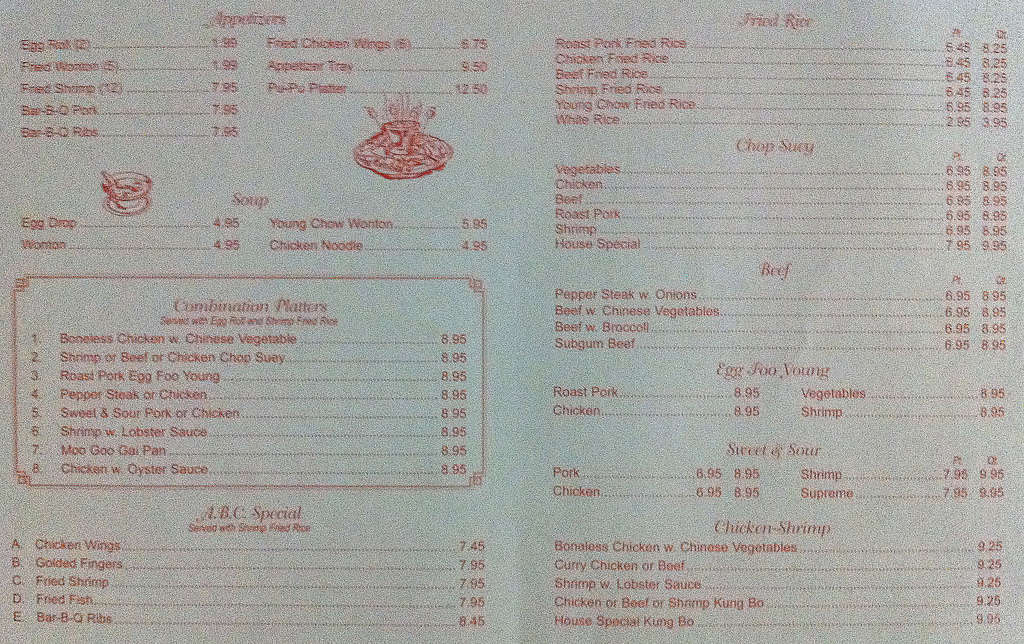 Appetizers
Egg Roll (2) 1.99 Fried Chicken Wings (6) 6.75
Fried Wonton (5) 1.99 Appetizer Tray 9.50
Fried Shrimp (12) 7.95 Pu-Pu Platter 12.50
Bar-B-Q Pork 7.95
Bar-B-Q Ribs 7.95
Soup
Egg Drop 4.95 Young Chow Wonton 5.95
Wonton 4.95 Chicken Noodle 4.95
Combination Platters
Served with Egg Roll and Shrimp Fried Rice
1. Boneless Chicken w. Chinese Vegetable 8.95
2 Shrimp or Beef or Chicken Chop Suey 8.95
3. Roast Pork Egg Foo Young 8.95
4. Pepper Steak or Chicken 8.95
5. Sweet & Sour Pork or Chicken 8.95
6. Shrimp w. Lobster Sauce 8.95
7. Moo Goo Gai Pan 8.95
8. Chicken w. Oyster Sauce 8.95
A.B.C. Special
Served with Shrimp Fried Rice
A. Chicken Wings 7.45
B. Golded Fingers 7.95
C. Fried Shrimp 7.95
D. Fried Fish 7.95
E. Bar-B-Q Ribs 8.45
Fried Rice
Pt. Qt.
Roast Pork Fried Rice 6.45 8.25
Chicken Fried Rice 6.45 8.25
Beef Fried Rice 6.45 8.25
Shrimp Fried Rice 6.45 8.25
Young Chow Fried Rice 6.95 8.95
White Rice 2.95 3.95
Chop Suey
Pt. Qt.
Vegetables 6.95 8.95
Chicken 6.95 8.95
Beef 6.95 8.95
Roast Pork 6.95 8.95
Shrimp 6.95 8.95
House Special 7.95 9.95
Beef
Pt. Qt.
Pepper Steak w. Onions 6.95 8.95
Beef w. Chinese Vegetables 6.95 8.95
Beef w. Broccoli 6.95 8.95
Subgum Beef 6.95 8.95
Egg Foo Young
Roast Pork 8.95 Vegetables 8.95
Chicken 8.95 Shrimp 8.95
Sweet & Sour
Pt. Qt.
Pork 6.95 8.95 Shrimp 7.95 9.95
Chicken 6.95 8.95 Supreme 7.95 9.95
Chicken-Shrimp
Boneless Chicken w. Chinese Vegetables 9.25
Curry Chicken or Beef 9.25
Shrimp w. Lobster Sauce 9.25
Chicken or Beef or Shrimp Kung Bo 9.25
House Special Kung Bo 9.95